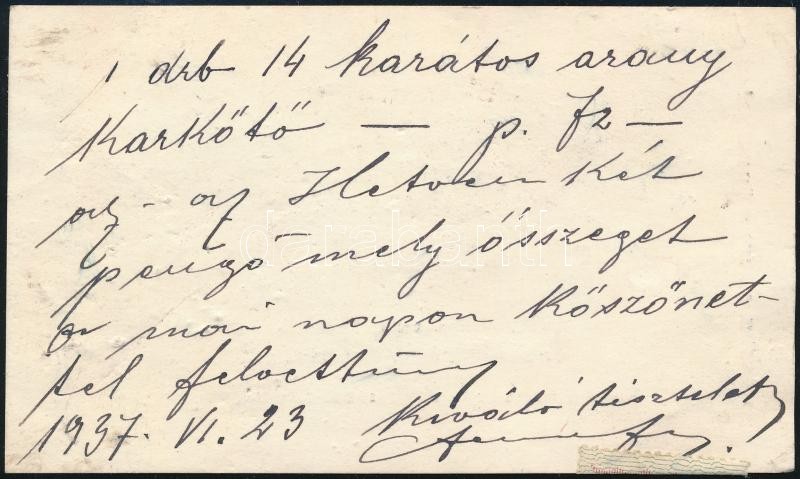 1 drb 14 karátos arany
Karkötő — p. 72 —
az - az Hetven Két
pengő mely összeget
a mai napon Köszönet-
tel felvettünk
1937. VI. 23 Kiváló tisztelettel
darabanth